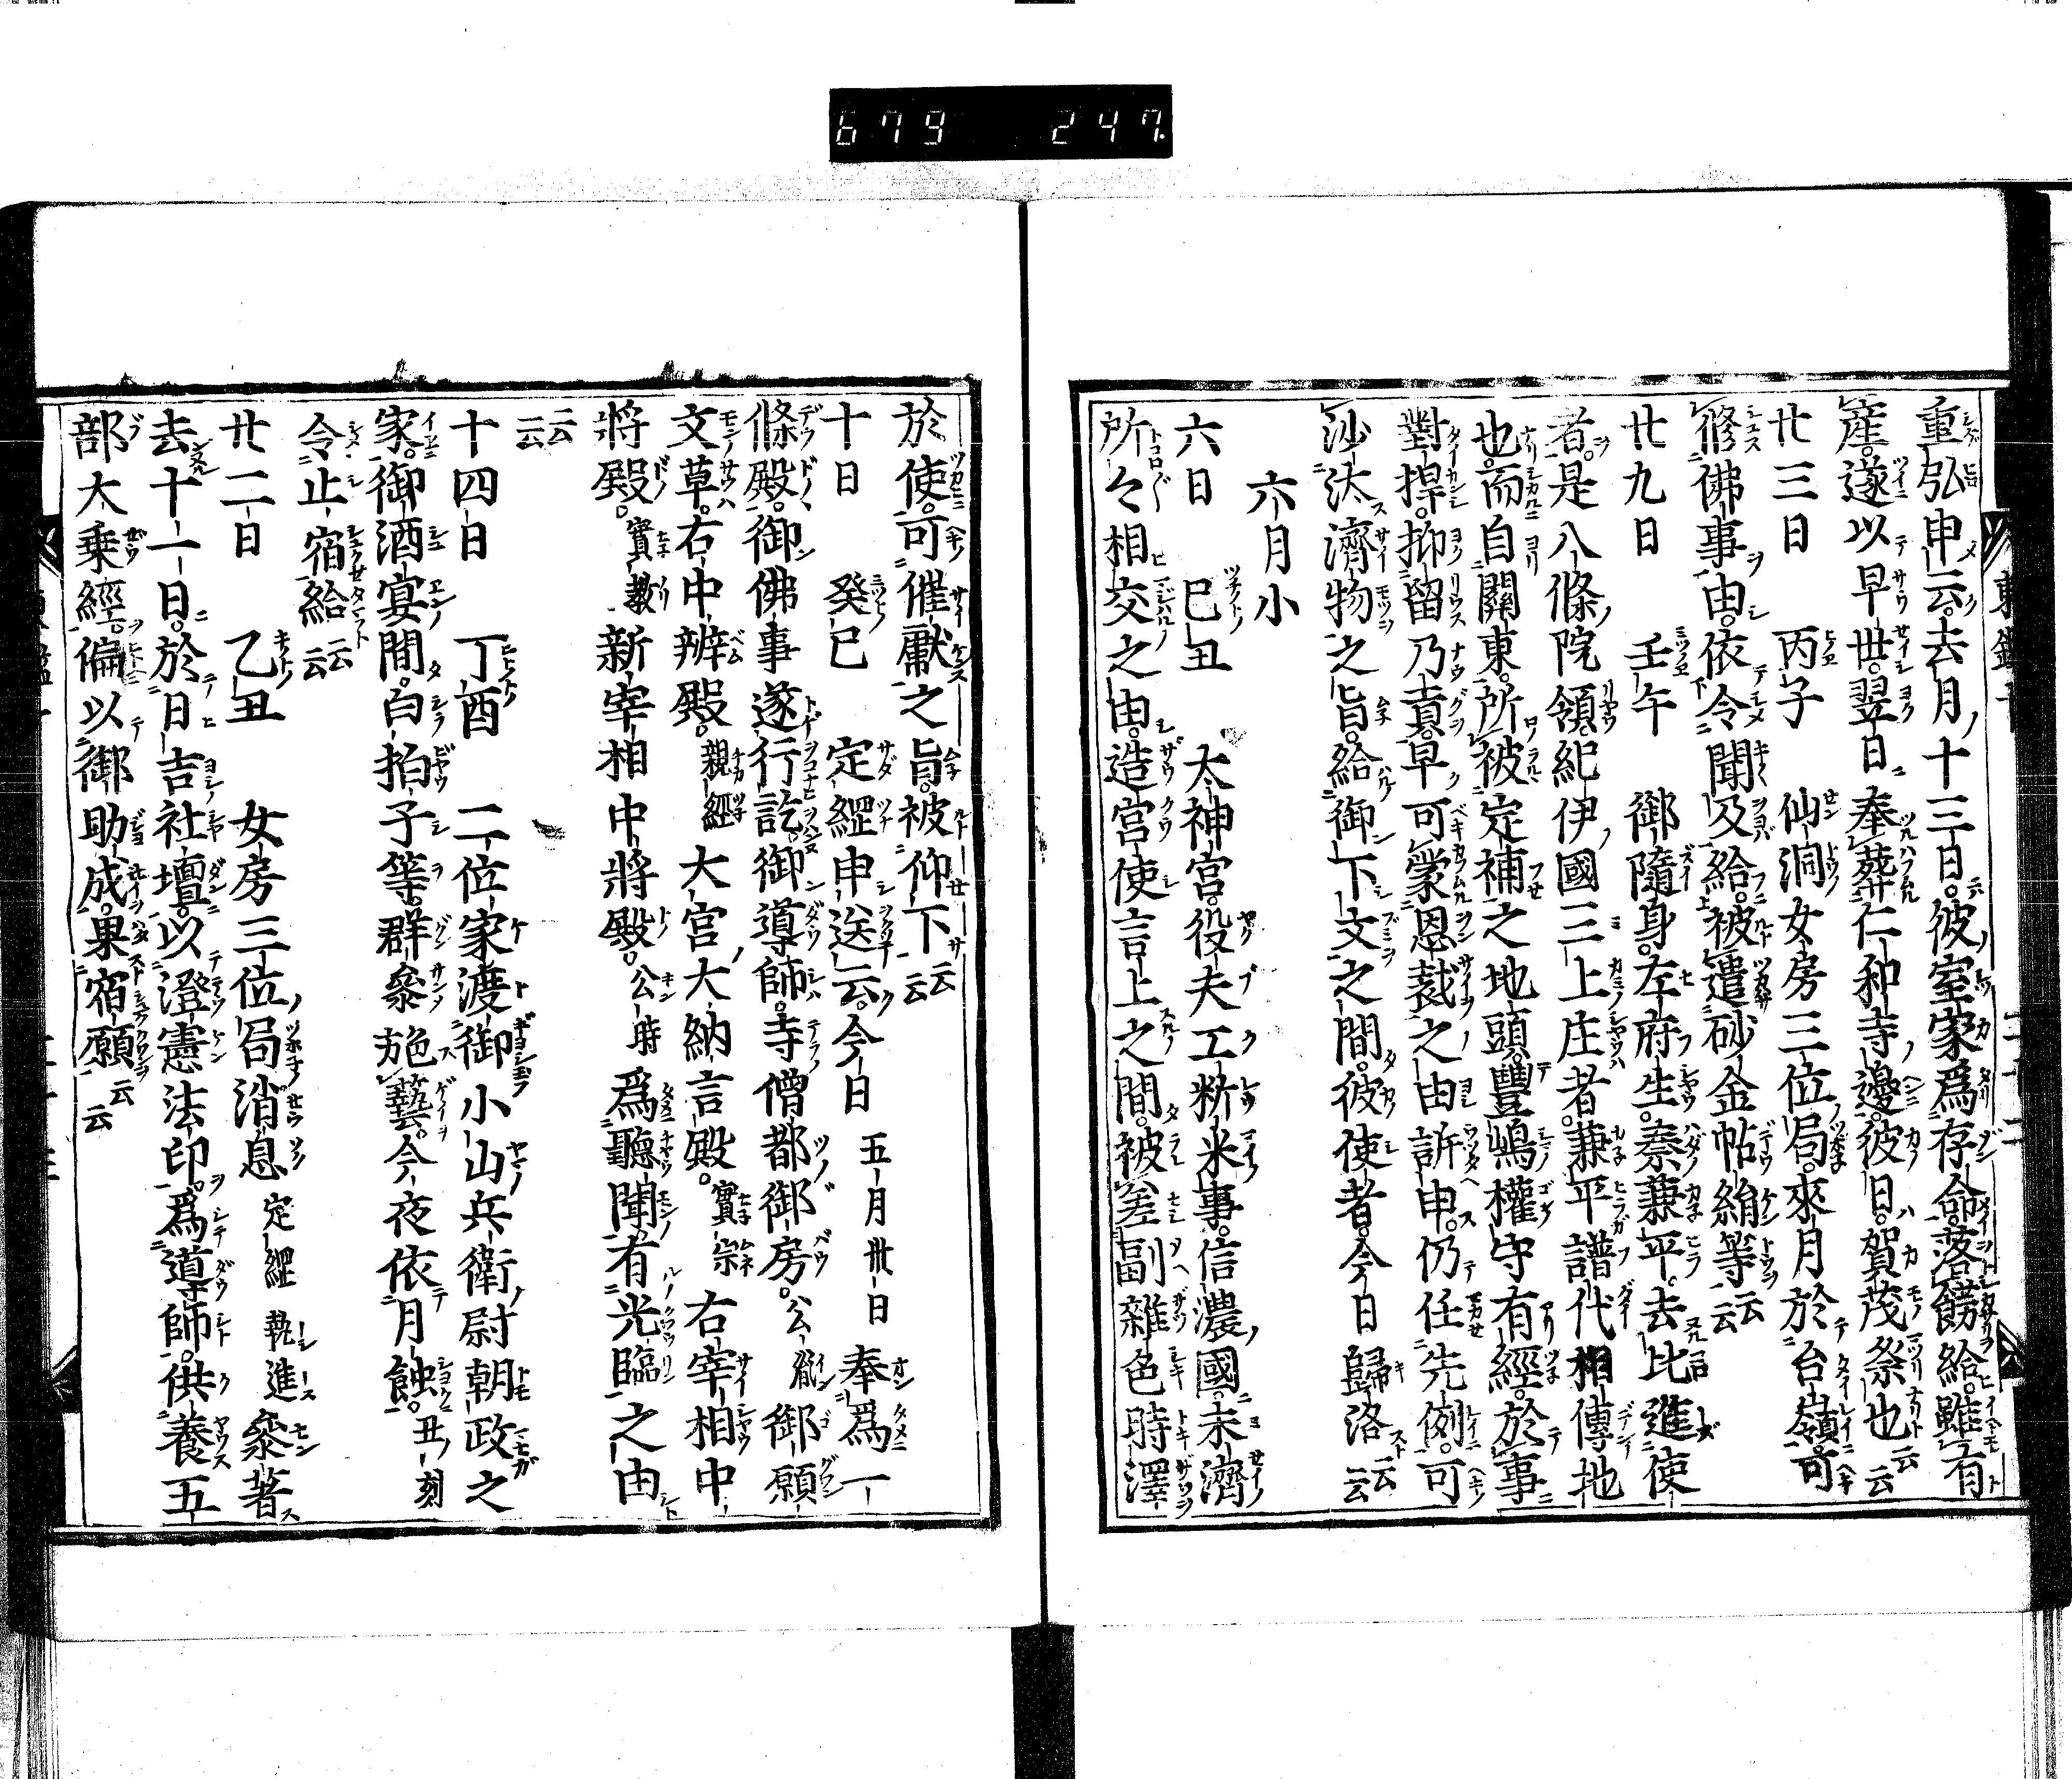 679 247
重弘申云。去月十三日。彼室家爲存命。落餝給。雖有
産。遂以早世。翌日奉葬仁和寺邊。彼日。賀茂祭也云云
廿三日 丙子 仙洞女房三位局。來月於台嶺。可
修佛事由。依令聞及給。被遣砂金帖絹等云云
廿九日 壬午 御隨身。左府生。秦兼平。去比進使
者。是八條院領。紀伊國三上庄者。兼平譜代相傳地
也。而自關東。所被定補之地頭。豐嶋權守有經。於事
對捍。抑留乃貢。早可蒙恩裁之由訴申。仍任先例。可
沙汰濟物之旨。給御下文之間。彼使者。今日歸洛云云
六月小
六日 己丑 大神宮。役夫工粆米事。信濃國。未濟
所々相交之由。造宮使言上之間。被差副雜色時澤
於使。可催獻之旨。被仰下云云
十日 癸巳 定經申送云。今日 五月卅日 奉爲一
條殿。御佛事遂行訖。御導師。寺僧都御房。公胤 御願
文草。右中辨殿。親經 大宮大納言殿。實宗 右宰相中
將殿。實教 新宰相中將殿。公時 爲聽聞。有光臨之由
云云
十四日 丁酉 二位家渡御小山兵衛尉朝政之
家。御酒宴間。白拍子等。群參施藝。今夜依月蝕。丑刻
令止宿給云云
廿二日 乙丑 女房三位局消息 定經執進 參著
去十一日。於日吉社壇。以澄憲法印。爲導師。供養五
部大乗經。偏以御助成。果宿願云云